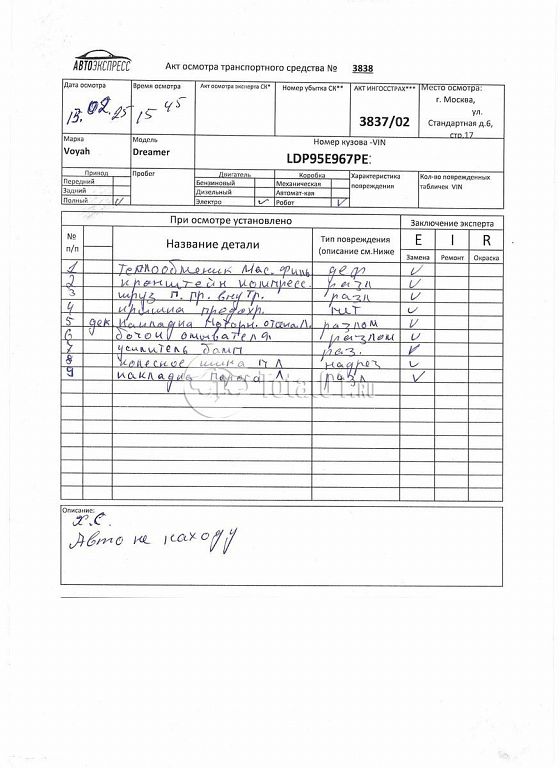 АВТОЭКСПРЕСС
Акт осмотра транспортного средства № 3838
Дата осмотра
13.02.25
Время осмотра
15 45
Акт осмотра эксперта СК*
Номер убытка СК**
АКТ ИНГОССТРАХ***
3837/02
Место осмотра:
г. Москва,
ул.
Стандартная д.6,
стр.17
Марка
Voyah
Модель
Dreamer
Номер кузова -VIN
LDP95E967PE:
Привод
Передний
Задний
Полный
Пробег
Двигатель
Бензиновый
Дизельный
Электро
Коробка
Механическая
Автомат-кая
Робот
Характеристика
повреждения
Кол-во поврежденных
табличек VIN
При осмотре установлено
Заключение эксперта
№
п/п
Название детали
Тип повреждения
(описание см.Ниже
E I R
Замена Ремонт Окраска
1 теплообменик мас. филь деф
2 кронштейн компресс. разл
3 шруз п. пр. внутр. разл
4 крышка предохр. нет
5 дек накладка моторн. отсека л. разлом
6 бочок омывателя разлом
7 усилитель бамп раз.
8 колесное шина п Л надрез
9 накладка порога Л разл
Total01.ru
Описание:
Х.С.
Авто не находу